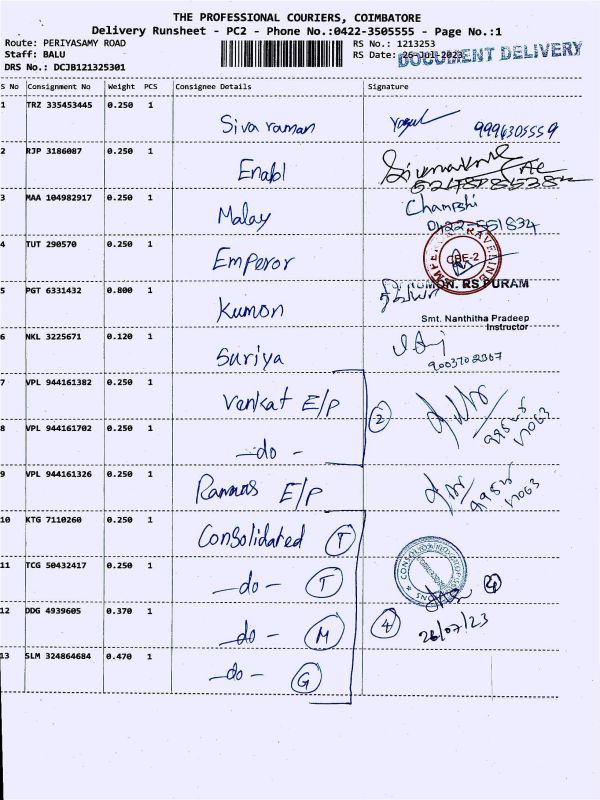 THE PROFESSIONAL COURIERS, COIMBATORE
Delivery Runsheet - PC2 - Phone No.:0422-3505555 - Page No.:1
Route: PERIYASAMY ROAD RS No.: 1213253
Staff: BALU RS Date: 26-Jul-2023
DOCUMENT DELIVERY
DRS No.: DCJB121325301
S No Consignment No Weight PCS Consignee Details Signature
1 TRZ 335453445 0.250 1 Sivaraman 9996305559
2 RJP 3186087 0.250 1 Enabl
3 MAA 104982917 0.250 1 Malay Champshi
0422-551834
4 TUT 290570 0.250 1 Emperor CBE-2
5 PGT 6331432 0.800 1 Kumon RS PURAM
Smt. Nanthitha Pradeep
Instructor
6 NKL 3225671 0.120 1 Suriya 9003702367
7 VPL 944161382 0.250 1 Venkat E/P 2
8 VPL 944161702 0.250 1 -do-
9 VPL 944161326 0.250 1 E/P
10 KTG 7110260 0.250 1 Consolidated T
11 TCG 50432417 0.250 1 -do- T
12 DDG 4939605 0.370 1 -do- M 4 26/07/23
13 SLM 324864684 0.470 1 -do- G